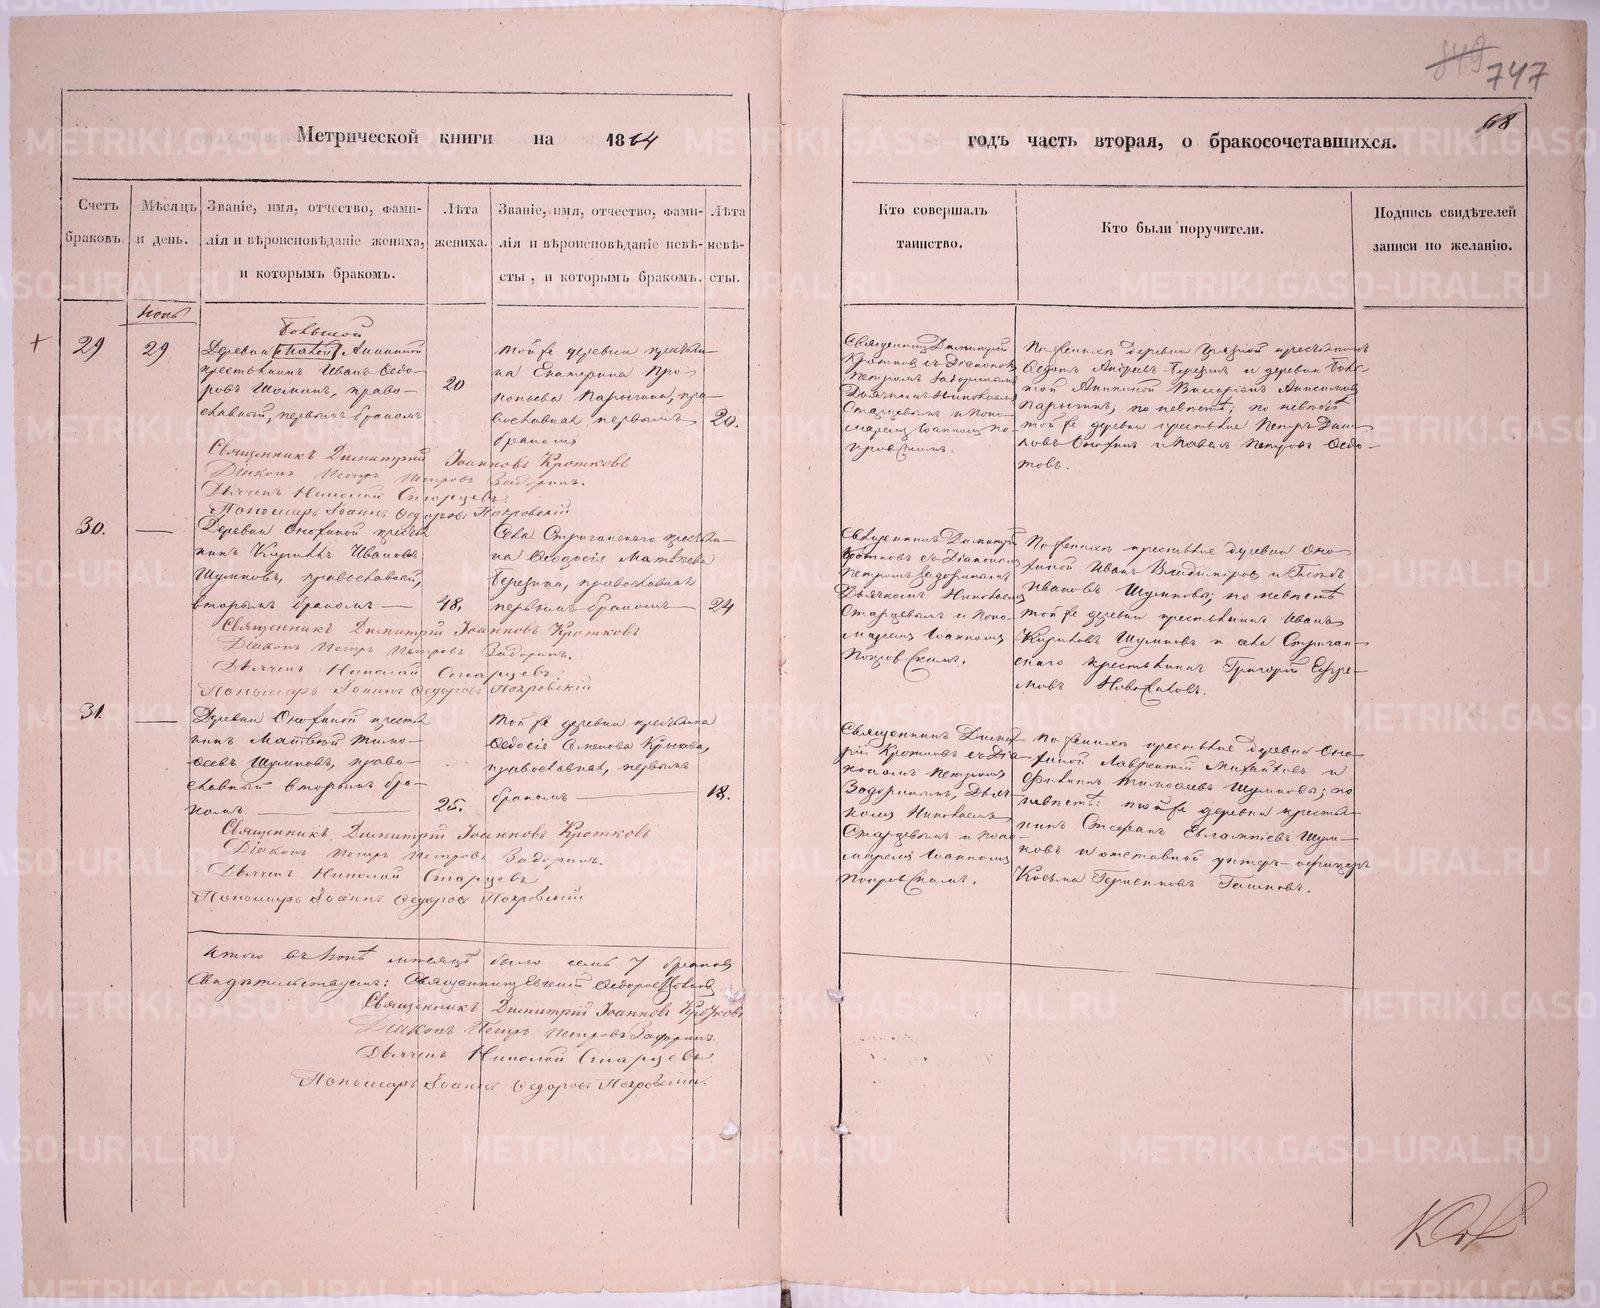 747
68
Метрической книги на 1864
годъ часть вторая, о бракосочетавшихся.
Счетъ браковъ.
Мѣсяцъ и день.
Званіе, имя, отчество, фами-
лія и вѣроисповѣданіе жениха,
и которымъ бракомъ.
Лѣта жениха.
Званіе, имя, отчество, фами-
лія и вѣроисповѣданіе невѣ-
сты, и которымъ бракомъ.
Лѣта невѣ-
сты.
Кто совершалъ
таинство.
Кто были поручители.
Подпись свидѣтелей
записи по желанію.
29
29
Большой
Деревни Ананиной
крестьянинъ Иванъ Ѳедо-
ровъ право-
славный, первымъ бракомъ
20
той же деревни крестьян-
ка Екатерина Про-
копьева Парыгина, пра-
вославная первымъ
бракомъ
20.
Священникъ Димитрій
Кротковъ съ Діакономъ
Петромъ Задоринымъ
Дьячкомъ Николаемъ
Старцевымъ и Поно-
маремъ Іоанномъ По-
кровскимъ.
По женихѣ деревни крестьянинъ
Андреевъ Березинъ и деревни Боль-
шой Ананиной Анисимовъ
Парыгинъ, по невѣстѣ:
той же деревни крестьяне Петръ
и Павелъ Петровъ Ѳедо-
товъ.
Священникъ Димитрій Іоанновъ Кротковъ
Діаконъ Петръ Петровъ Задоринъ.
Дьячекъ Николай Старцевъ
Пономарь Іоаннъ Ѳедоровъ Покровскій
30.
Деревни Онохиной крестья-
нинъ Кириллъ Ивановъ
Шумковъ, православный,
вторымъ бракомъ
48.
Села Стриганскаго крестьян-
ка Ѳеодосія Матвѣева
Березина, православная
первымъ бракомъ
24
Священникъ Димитрій
Кротковъ съ Діакономъ
Петромъ Задоринымъ
Дьячкомъ Николаемъ
Старцевымъ и Поно-
маремъ Іоанномъ
Покровскимъ.
По женихѣ крестьяне деревни Оно-
хиной Иванъ Владиміровъ и Глѣбъ
Ивановъ Шумковы; по невѣстѣ
той же деревни крестьянинъ Иванъ
Кириловъ Шумковъ и села Стриган-
скаго крестьянинъ Григорій Ефре-
мовъ Новоселовъ.
Священникъ Димитрій Іоанновъ Кротковъ
Діаконъ Петръ Петровъ Задоринъ.
Дьячекъ Николай Старцевъ
Пономарь Іоаннъ Ѳедоровъ Покровскій
31.
Деревни Онохиной крестья-
нинъ Матвей Тимо-
ѳеевъ Шумковъ, право-
славный вторымъ бра-
комъ
25.
той же деревни крестьянка
Ѳедосія Семенова
православная, первымъ
бракомъ
18.
Священникъ Димит-
рій Кротковъ съ Діа-
кономъ Петромъ
Задоринымъ, Дьяч-
комъ Николаемъ
Старцевымъ и Поно-
маремъ Іоанномъ
Покровскимъ.
По женихѣ крестьяне деревни Оно-
хиной Лаврентій Михайловъ и
Филипъ Тимоѳеевъ Шумковы; по
невѣстѣ: той же деревни крестья-
нинъ Стефанъ Евлампіевъ Шум-
ковъ и отставной унтеръ-офицеръ
Косьма
Священникъ Димитрій Іоанновъ Кротковъ
Діаконъ Петръ Петровъ Задоринъ.
Дьячекъ Николай Старцевъ
Пономарь Іоаннъ Ѳедоровъ Покровскій
Итого въ мѣсяцѣ было семь 7 браковъ
Свидѣтельствуемъ: Священникъ Евгеній Ѳедоровъ
Священникъ Димитрій Іоанновъ Кротковъ
Діаконъ Петръ Петровъ Задоринъ.
Дьячекъ Николай Старцевъ
Пономарь Іоаннъ Ѳедоровъ Покровскій.
METRIKI.GASO-URAL.RU